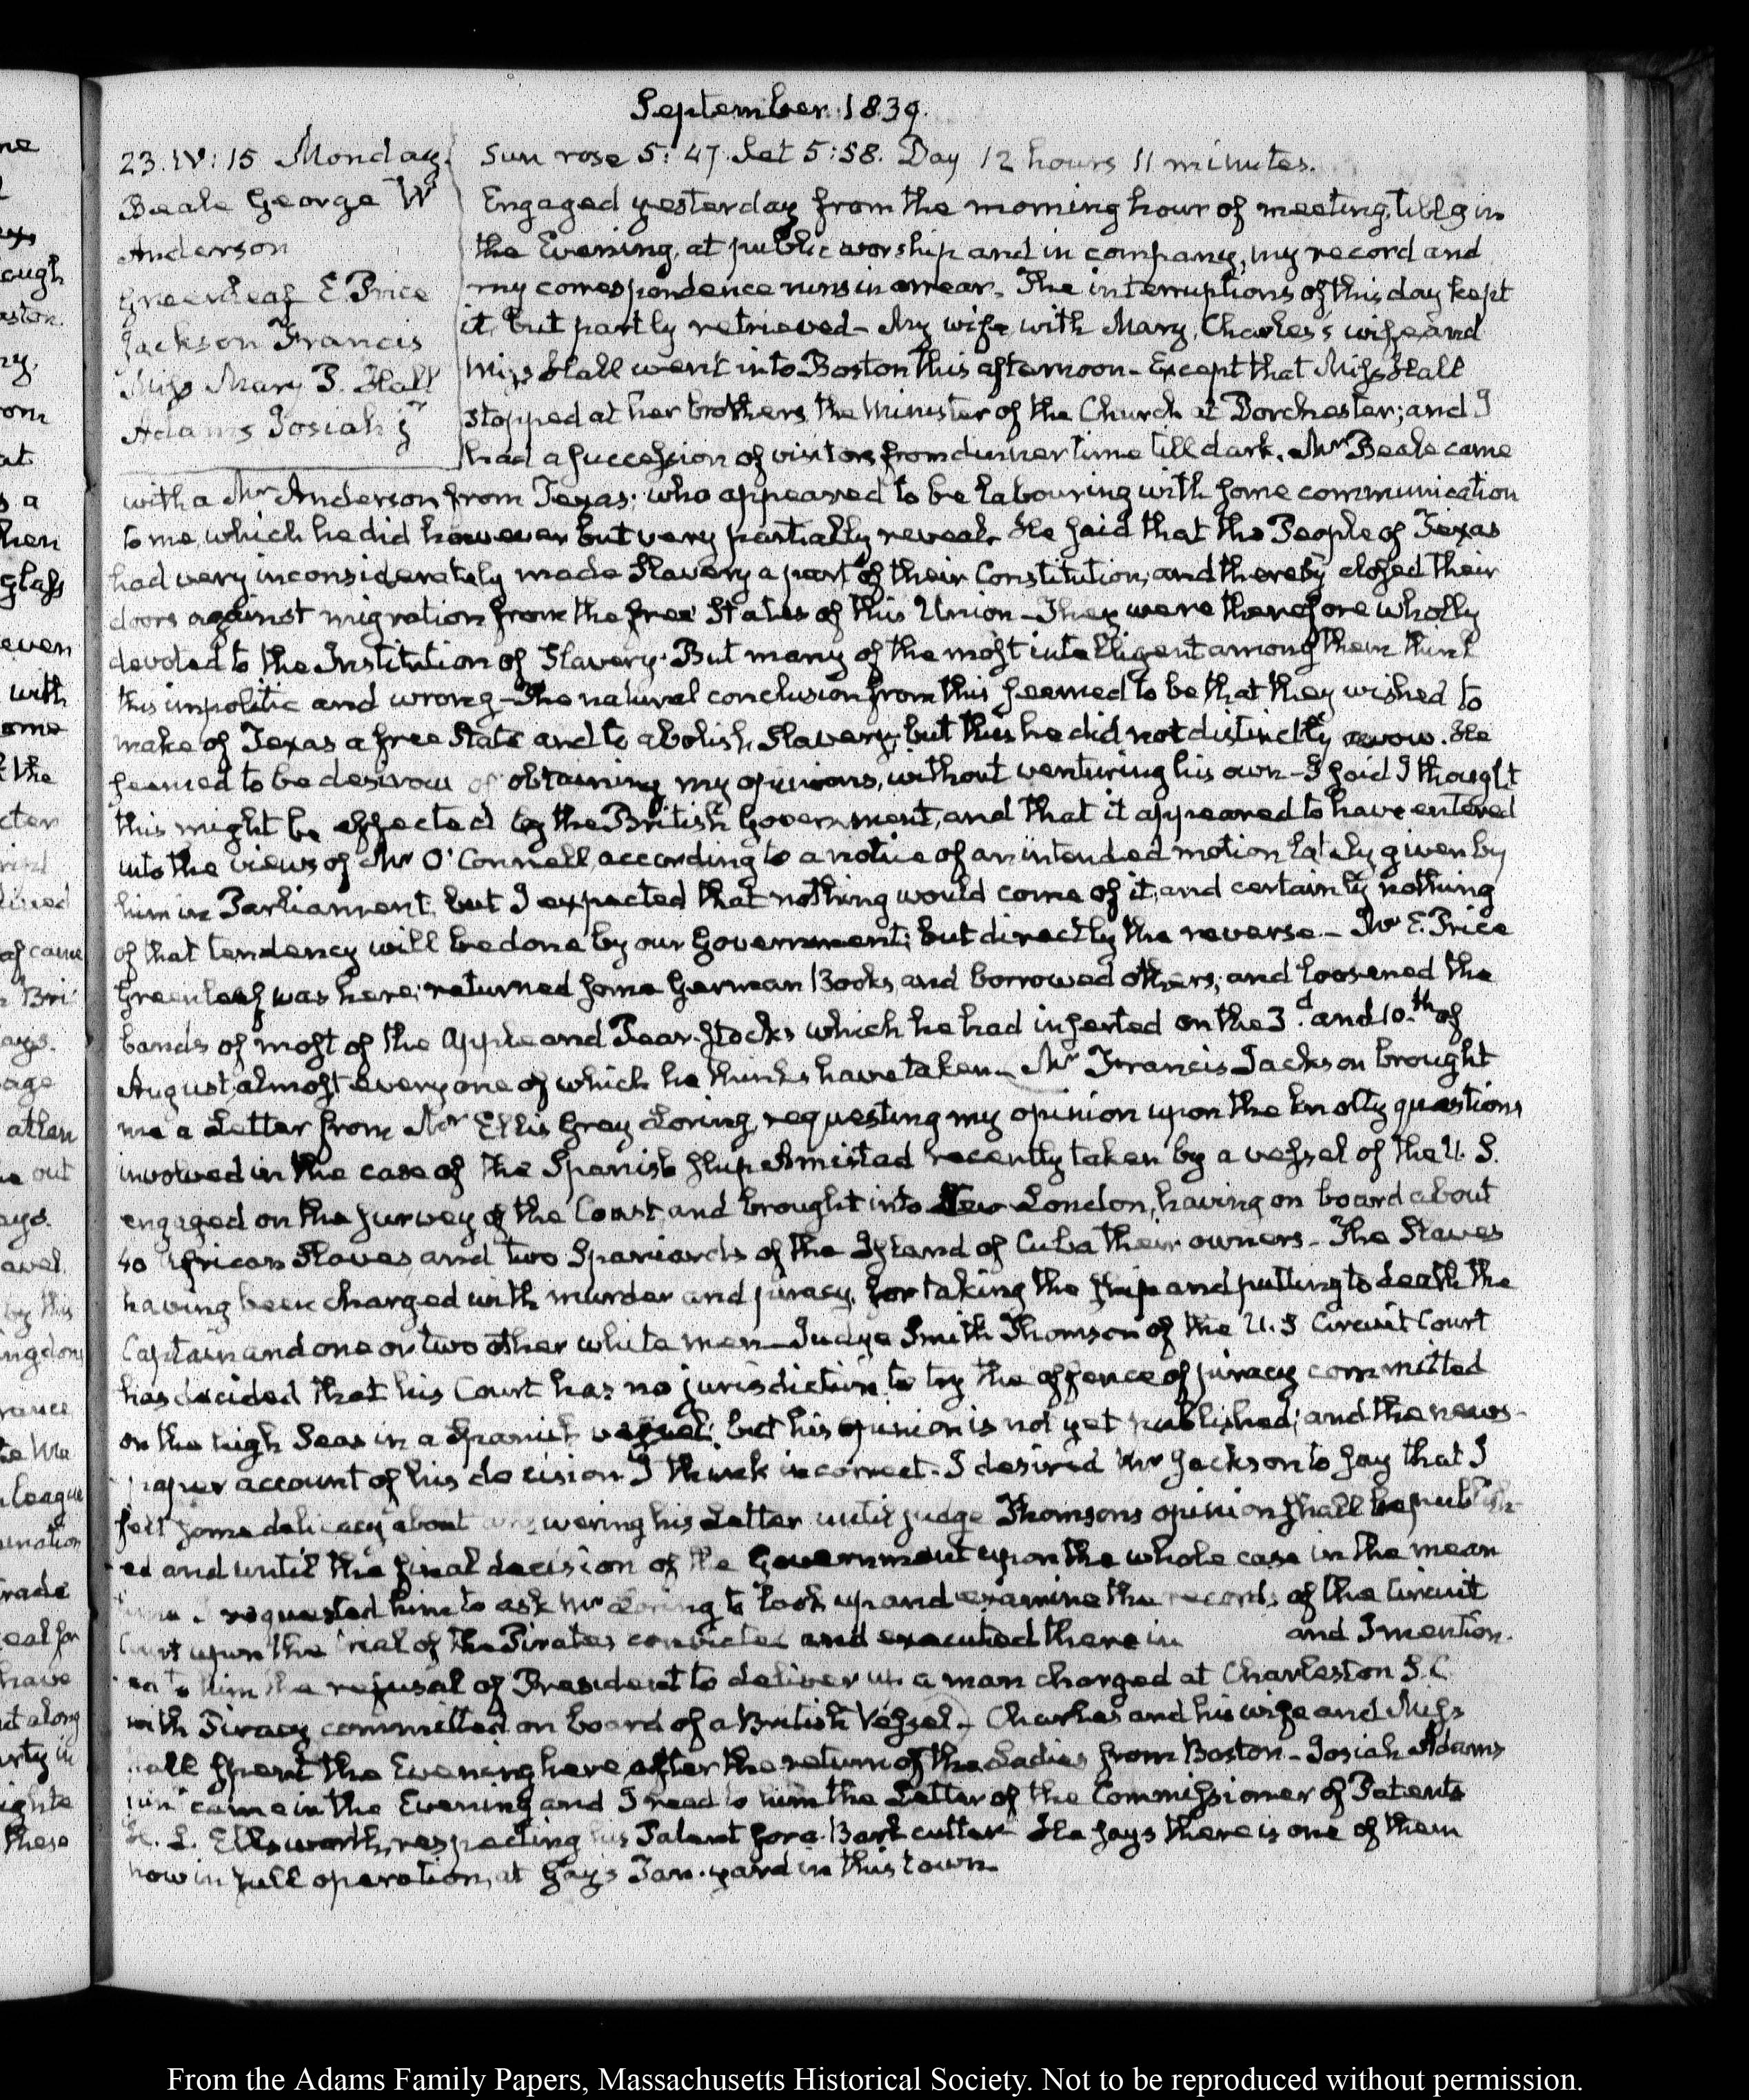 September 1839.
23. IV: 15 Monday.
Beale George W
Anderson
Greenleaf E. Price
Jackson Francis
Miss Mary P. Hall
Adams Josiah jr
Sun rose 5:47. Set 5:58. Day 12 hours 11 minutes.
Engaged yesterday from the morning hour of meeting, till 9 in
the Evening, at public worship and in company, my record and
my correspondence runs in arrear. The interruptions of this day kept
it but partly retrieved – My wife with Mary, Charles's wife and
Miss Hall went into Boston this afternoon – Except that Miss Hall
stopped at her brothers, the Minister of the Church at Dorchester; and I
had a succession of visitors from dinner time till dark. Mr Beale came
with a Mr Anderson from Texas; who appeared to be labouring with some communication
to me, which he did however but very partially reveal. He said that the People of Texas
had very inconsiderately made Slavery a part of their Constitution, and thereby closed their
doors against migration from the free States of this Union – They were therefore wholly
devoted to the Institution of Slavery. But many of the most intelligent among them think
this impolitic and wrong – The natural conclusion from this seemed to be that they wished to
make of Texas a free State and to abolish Slavery; but this he did not distinctly avow. He
seemed to be desirous of obtaining my opinions, without venturing his own – I said I thought
this might be effected by the British Government, and that it appeared to have entered
into the views of Mr O'Connell, according to a notice of an intended motion lately given by
him in Parliament; but I expected that nothing would come of it, and certainly nothing
of that tendency will be done by our Government; but directly the reverse – Mr E. Price
Greenleaf was here; returned some German Books, and borrowed others; and loosened the
bands of most of the Apple and Pear-stocks which he had inserted on the 3.d and 10.th of
August, almost every one of which he thinks have taken – Mr Francis Jackson brought
me a Letter from Mr Ellis Gray Loring, requesting my opinion upon the knotty questions
involved in the case of the Spanish ship Amistad recently taken by a vessel of the U. S.
engaged on the survey of the Coast, and brought into New London, having on board about
40 African Slaves and two Spaniards of the Island of Cuba their owners – The Slaves
having been charged with murder and piracy, for taking the ship and putting to death the
Captain and one or two other white men – Judge Smith Thomson of the U. S Circuit Court
has decided that his Court has no jurisdiction to try the offence of piracy committed
on the high Seas in a Spanish vessel; but his opinion is not yet published; and the news-
paper account of his decision I think incorrect. I desired Mr Jackson to say that I
felt some delicacy about answering his Letter until judge Thomsons opinion shall be publish-
ed and until the final decision of the Government upon the whole case in the mean
time I requested him to ask Mr Loring to look up and examine the records of the Circuit
Court upon the trial of the Pirates convicted and executed there in and I mention-
ed to him the refusal of President to deliver up a man charged at Charleston S. C.
with Piracy committed on board of a British Vessel – Charles and his wife and Miss
Hall spent the Evening here after the return of the Ladies from Boston – Josiah Adams
junr came in the Evening and I read to him the Letter of the Commissioner of Patents
H. L. Ellsworth, respecting his Patent for a Bark cutter – He says there is one of them
now in full operation, at Gay's Tan-yard in this town.
From the Adams Family Papers, Massachusetts Historical Society. Not to be reproduced without permission.